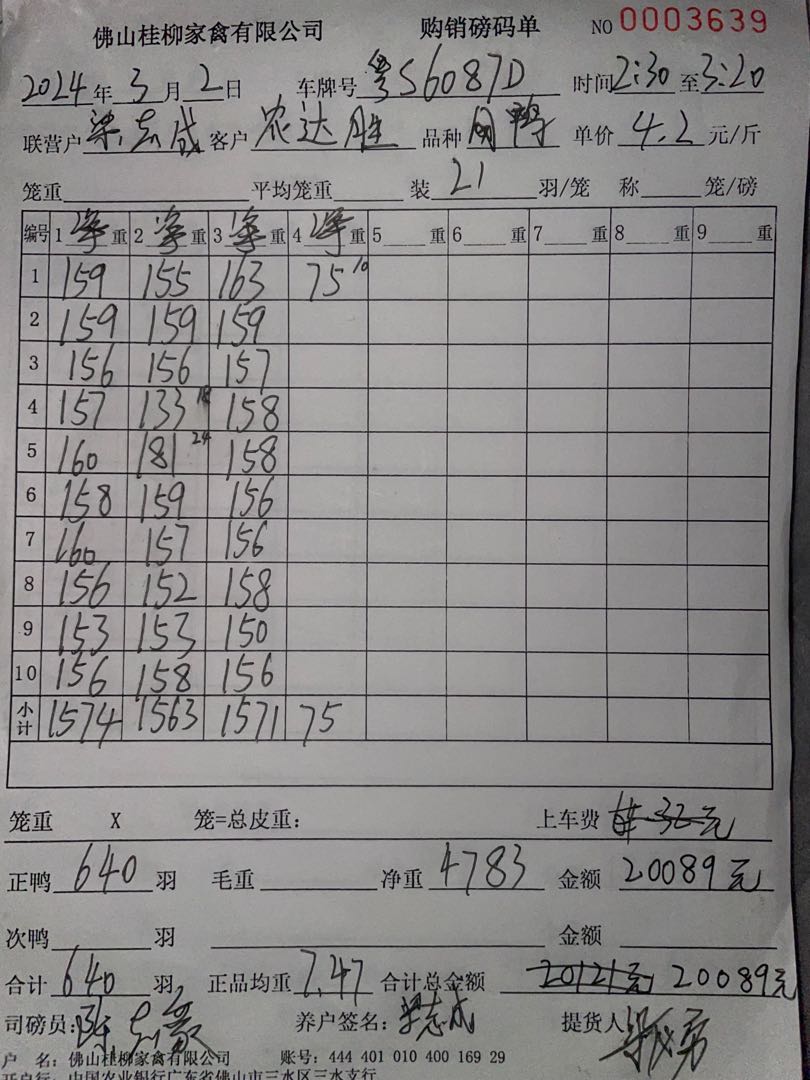 佛山桂柳家禽有限公司 购销磅码单 NO 0003639
2024年3月2日 车牌号 粤S6087D 时间2:30至3:20
联营户 梁志成 客户 农达胜 品种 肉鸭 单价 4.2 元/斤
笼重 平均笼重 装 21 羽/笼 称 笼/磅
编号 1 净重 2 净重 3 净重 4 净重 5 重 6 重 7 重 8 重 9 重
1 159 155 163 75 10
2 159 159 159
3 156 156 157
4 157 133 18 158
5 160 181 24 158
6 158 159 156
7 160 157 156
8 156 152 158
9 153 153 150
10 156 158 156
小计 1574 1563 1571 75
笼重 X 笼=总皮重: 上车费 32元
正鸭 640 羽 毛重 净重 4783 金额 20089元
次鸭 羽 金额
合计 640 羽 正品均重 7.47 合计总金额 20121元 20089元
司磅员: 陈志豪 养户签名: 梁志成 提货人
户 名: 佛山桂柳家禽有限公司 账号: 444 401 010 400 169 29
开户行: 中国农业银行广东省佛山市三水区三水支行